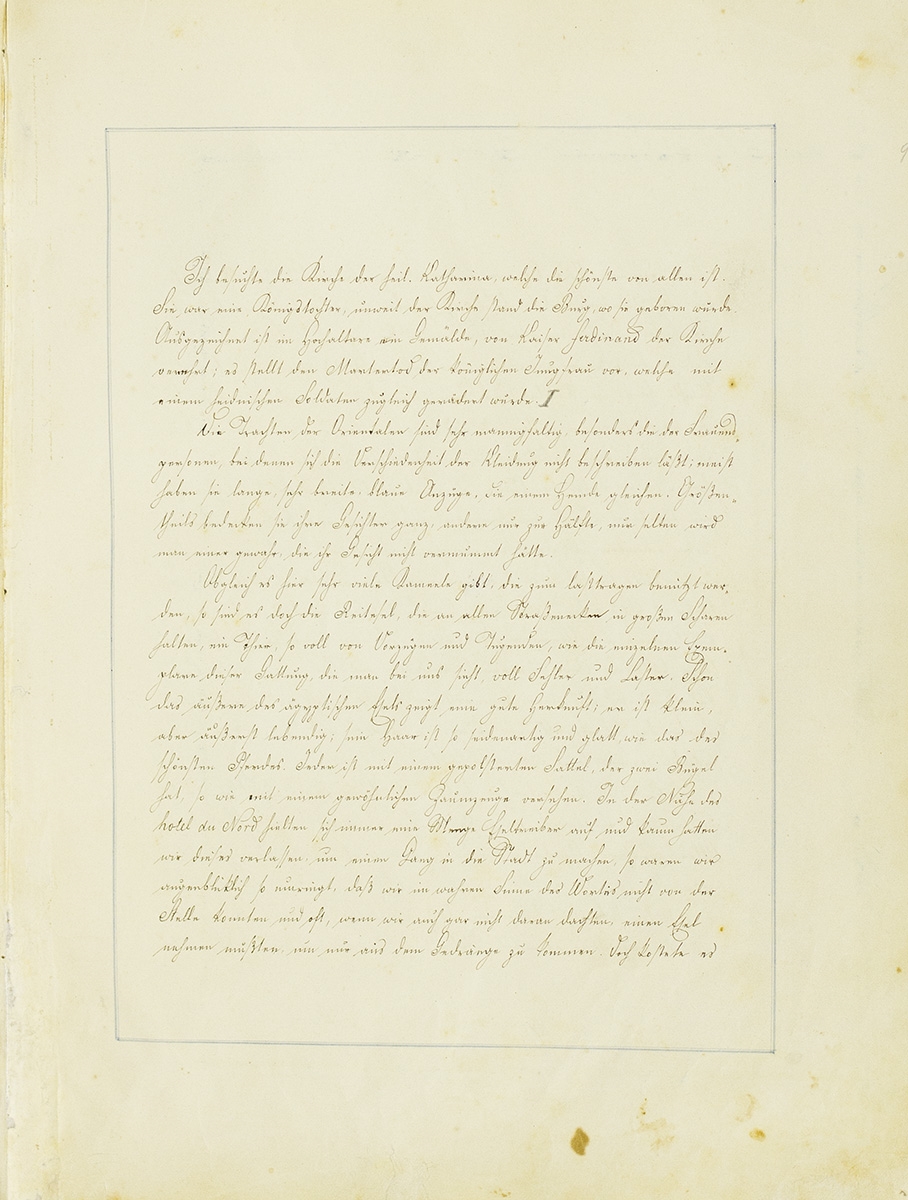 Ich besuchte die Kirche der heil. Katharina, welche die schönste von allen ist.
Sie war eine Königstochter, unweit der Kirche stand die Burg, wo sie geboren wurde.
Ausgezeichnet ist im Hochaltare ein Gemälde, von Kaiser Ferdinand der Kirche
verehrt; es stellt den Martertod der königlichen Jungfrau vor, welche mit
einem heidnischen Soldaten zugleich gerädert wurde. I
Die Trachten der Orientalen sind sehr mannigfaltig, besonders die der Frauens-
personen, bei denen sich die Verschiedenheit der Kleidung nicht beschreiben läßt; meist
haben sie lange, sehr breite, blaue Anzüge, die einem Hemde gleichen. Größten-
theils bedecken sie ihre Gesichter ganz, andere nur zur Hälfte, nur selten wird
man einer gewahr, die ihr Gesicht nicht vermummt hätte.
Obgleich es hier sehr viele Kameele gibt, die zum lasttragen benützt wer-
den, so sind es doch die Reitesel, die an allen Straßenecken in großen Scharen
halten, ein Thier, so voll von Vorzügen und Tugenden, wie die einzelnen Exem-
plare dieser Gattung, die man bei uns sieht, voll Fehler und Laster. Schon
das äußere des ägyptischen Esels zeigt eine gute Herkunft; er ist klein,
aber äußerst lebendig; sein Haar ist so seidenartig und glatt, wie das des
schönsten Pferdes. Jeder ist mit einem gepolsterten Sattel, der zwei Bügel
hat, so wie mit einem gewöhnlichen Zaumzeuge versehen. In der Nähe des
hotel du Nord hielten sich immer eine Menge Eseltreiber auf und kaum hatten
wir dieses verlassen, um einen Gang in die Stadt zu machen, so waren wir
augenblicklich so umringt, daß wir im wahren Sinne des Wortes nicht von der
Stelle konnten und oft, wenn wir auch gar nicht daran dachten, einen Esel
nehmen mußten, um nur aus dem Gedränge zu kommen. Doch kostete es